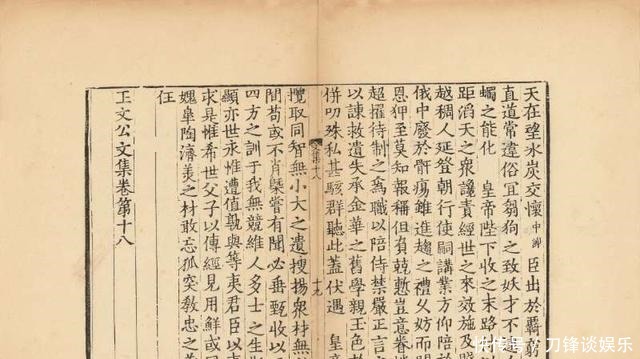 天在望氷炭交懷中謝臣出於覊
直道常違俗宜芻狗之致妖才不
蠋之能化 皇帝陛下收之末路
距滔天之衆讒責經世之來效施及
越稠人延登朝行使嗣講業方仰
俄中廢於骭瘍雖進趨之禮又妨而
恩狎至莫知報稱但有兢慙豈意眷
超擢待制之為職以陪侍禁嚴正
以諫救遺失承金華之舊學親王色
併叨殊私甚駭群聽此蓋伏遇 皇
十九
攬取同智無小大之遺搜揚衆材無
間苟或不肖槩嘗有聞必垂甄收以
四方之訓于我無競維人多士之生
顯亦世永惟遭值覯與等夷君臣以
求是惟希世父子以傳經見用鮮或
媿皐陶濟美之材敢忘孤突教忠之
任
王文公文集卷第十八
快传号/刀锋谈娱乐